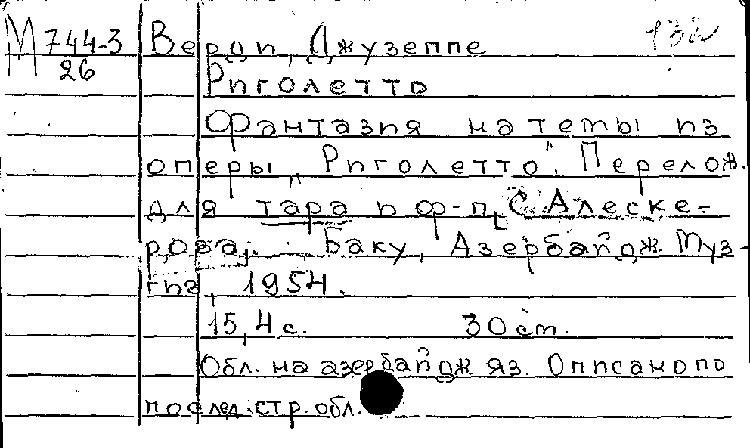 М 744-3 Верди, Джузеппе 132
26
Риголетто
Фантазия на темы из
оперы „Риголетто". Перелож.
для тара и ф-п. С. Алеске-
рова. Баку, Азербайдж. Муз-
гиз, 1954.
15, 4 с. 30 cm.
Обл. на азербайдж. яз. Описано по
послед. стр. обл.